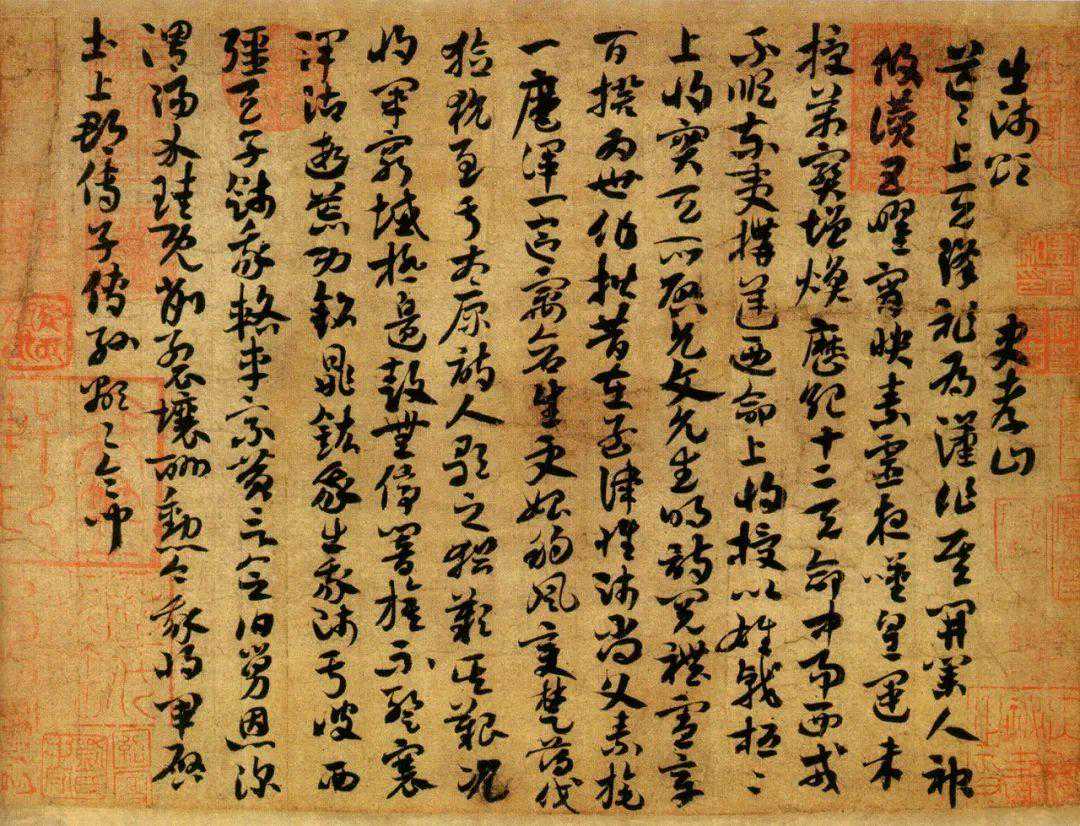 出師頌 史孝山
茫々上天降祚為漢作基開業人神
攸讚五曜宵映素靈夜嘆皇運未
授萬寶增煥歷紀十二天命中易西戎
不順東夷搆逆乃命上將授以雄戟桓々
上將寔天所啓允文允武明詩閱禮憲章
百揆為世作楷昔在孟津惟師尚父素旄
一麾渾一區寓蒼生更始朔風變楚薄伐
獫狁至于太原詩人歌之猶歎其艱況
將軍窮域極邊鼓無停響旗不蹔褰
澤沾遐荒功銘鼎鉉我出我師于彼西
疆天子餞我輅車乘黃言念伯舅恩深
渭陽介珪既削裂壤酬勳今我將軍啓
土上郡傳子傳孫顯々令問